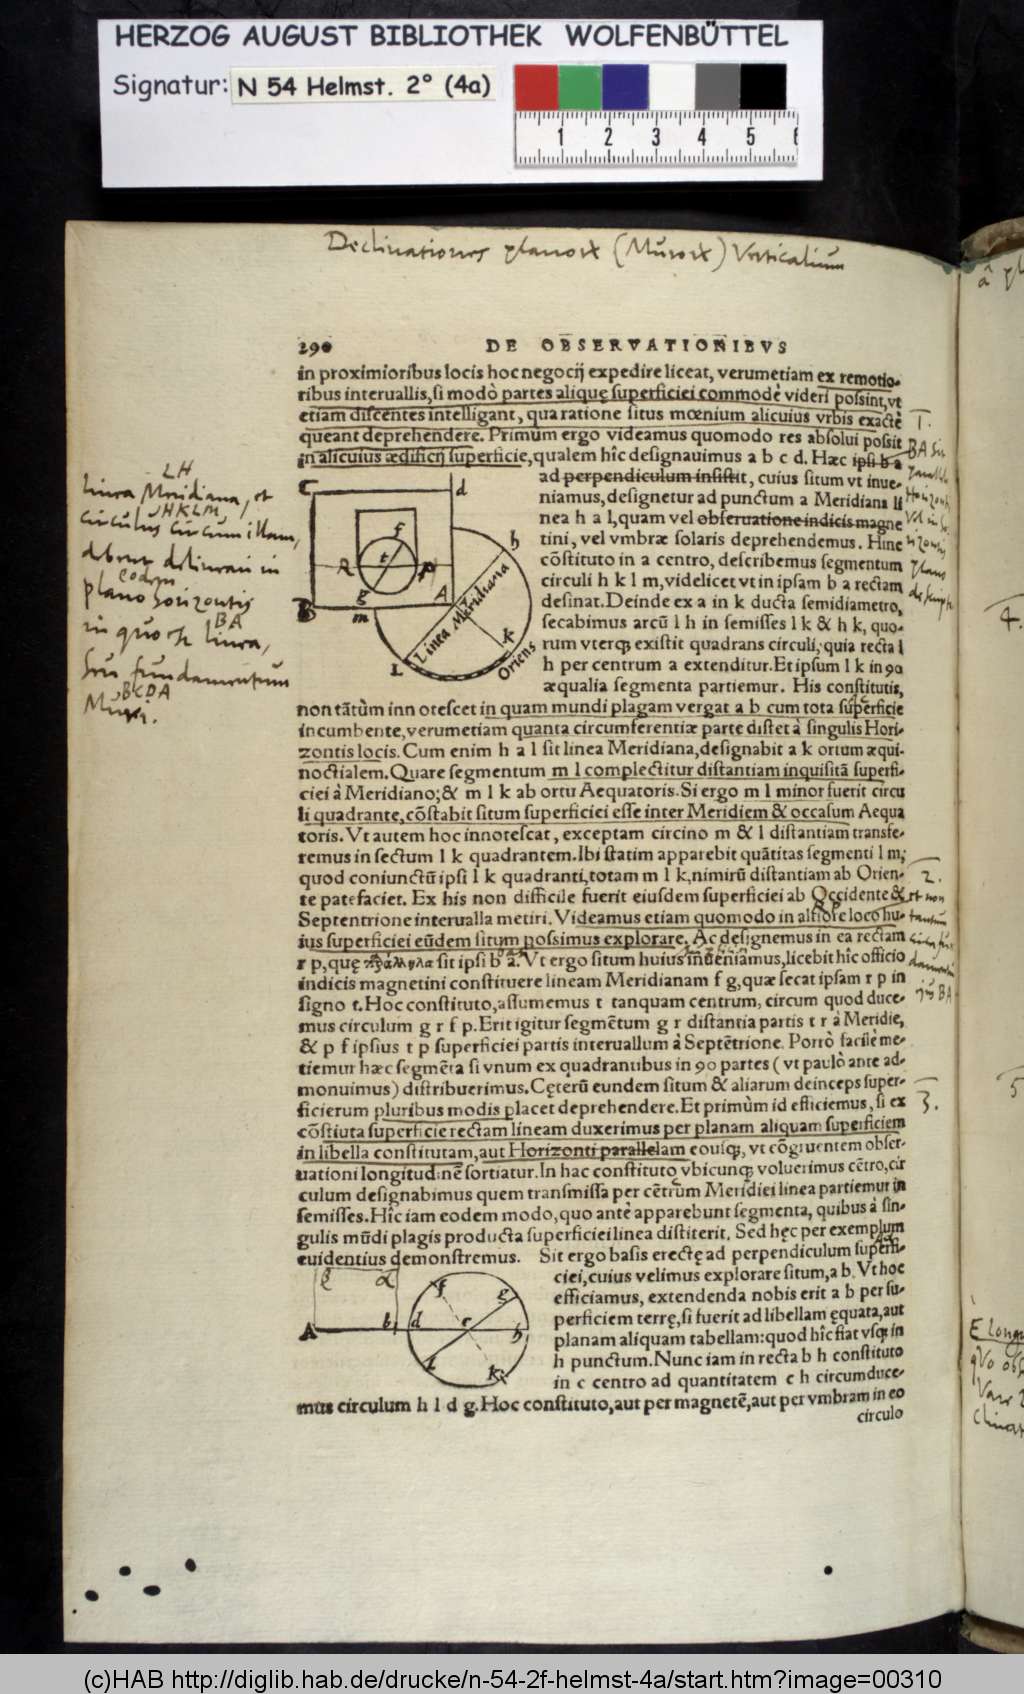 HERZOG AUGUST BIBLIOTHEK WOLFENBÜTTEL
Signatur: N 54 Helmst. 2° (4a)
1 2 3 4 5 6
Declinationes planorum (Murorum) Verticalium
290 DE OBSERVATIONIBVS
in proximioribus locis hoc negocij expedire liceat, verumetiam ex remotio-
ribus interuallis, si modò partes aliquę superficiei commodè videri possint, vt
etiam discentes intelligant, qua ratione situs mœnium alicuius vrbis exactè
queant deprehendere. Primum ergo videamus quomodo res absolui possit
in alicuius ædificij superficie, qualem hîc designauimus a b c d. Hæc ipsi b a
ad perpendiculum insistit, cuius situm vt inue-
niamus, designetur ad punctum a Meridiana li
nea h a l, quam vel obseruatione indicis magne
tini, vel vmbræ solaris deprehendemus. Hinc
cõstituto in a centro, describemus segmentum
circuli h k l m, videlicet vt in ipsam b a rectam
desinat. Deinde ex a in k ducta semidiametro,
secabimus arcũ l h in semisses l k & h k, quo-
rum vterq; existit quadrans circuli, quia recta l
h per centrum a extenditur. Et ipsum l k in 90
æqualia segmenta partiemur. His constitutis,
non tãtùm innotescet in quam mundi plagam vergat a b cum tota superficie
incumbente, verumetiam quanta circumferentiæ parte distet à singulis Hori-
zontis locis. Cum enim h a l sit linea Meridiana, designabit a k ortum æqui-
noctialem. Quare segmentum m l complectitur distantiam inquisitã superfi-
ciei à Meridiano; & m l k ab ortu Aequatoris. Si ergo m l minor fuerit circu
li quadrante, cõstabit situm superficiei esse inter Meridiem & occasum Aequa
toris. Vt autem hoc innotescat, exceptam circino m & l distantiam transfe-
remus in sectum l k quadrantem. Ibi statim apparebit quãtitas segmenti l m;
quod coniunctũ ipsi l k quadranti, totam m l k, nimirũ distantiam ab Orien-
te patefaciet. Ex his non difficile fuerit eiusdem superficiei ab Occidente &
Septentrione interualla metiri. Videamus etiam quomodo in altiore loco hu-
ius superficiei eũdem situm possimus explorare. Ac designemus in ea rectam
r p, quę παράλληλα sit ipsi b a. Vt ergo situm huius inueniamus, licebit hîc officio
indicis magnetini constituere lineam Meridianam f g, quæ secat ipsam r p in
signo t. Hoc constituto, assumemus t tanquam centrum, circum quod duce-
mus circulum g r f p. Erit igitur segmẽtum g r distantia partis t r à Meridie,
& p f ipsius t p superficiei partis interuallum à Septẽtrione. Porrò facilè me-
tiemur hæc segmẽta si vnum ex quadrantibus in 90 partes ( vt paulò ante ad-
monuimus ) distribuerimus. Cęterũ eundem situm & aliarum deinceps super-
ficierum pluribus modis placet deprehendere. Et primùm id efficiemus, si ex
cõstiuta superficie rectam lineam duxerimus per planam aliquam superficiem
in libella constitutam, aut Horizonti parallelam eousq;, vt cõgruentem obser-
uationi longitudinẽ sortiatur. In hac constituto vbicunq; voluerimus cẽtro, cir
culum designabimus quem transmissa per cẽtrum Meridiei linea partiemur in
semisses. Hîc iam eodem modo, quo antè apparebunt segmenta, quibus à sin-
gulis mũdi plagis producta superficiei linea distiterit. Sed hęc per exemplum
euidentius demonstremus. Sit ergo basis erectę ad perpendiculum superfi-
ciei, cuius velimus explorare situm, a b. Vt hoc
efficiamus, extendenda nobis erit a b per su-
perficiem terrę, si fuerit ad libellam ęquata, aut
planam aliquam tabellam: quod hîc fiat vsq; in
h punctum. Nunc iam in recta b h constituto
in c centro ad quantitatem c h circumduce-
mus circulum h l d g. Hoc constituto, aut per magnetẽ, aut per vmbram in eo
circulo
C d f t R P g B m A h k L
Linea Meridiana
Oriens
LH
linea Meridiana, et
HKLM
circulus circum illam,
debent delineari in
eodem
plano horizontis
BA
in quo est linea,
seu fundamentum
BCDA
Muri.
1.
2.
et non
tantum
3.
A b d f g c h l k
4.
5
(c)HAB http://diglib.hab.de/drucke/n-54-2f-helmst-4a/start.htm?image=00310